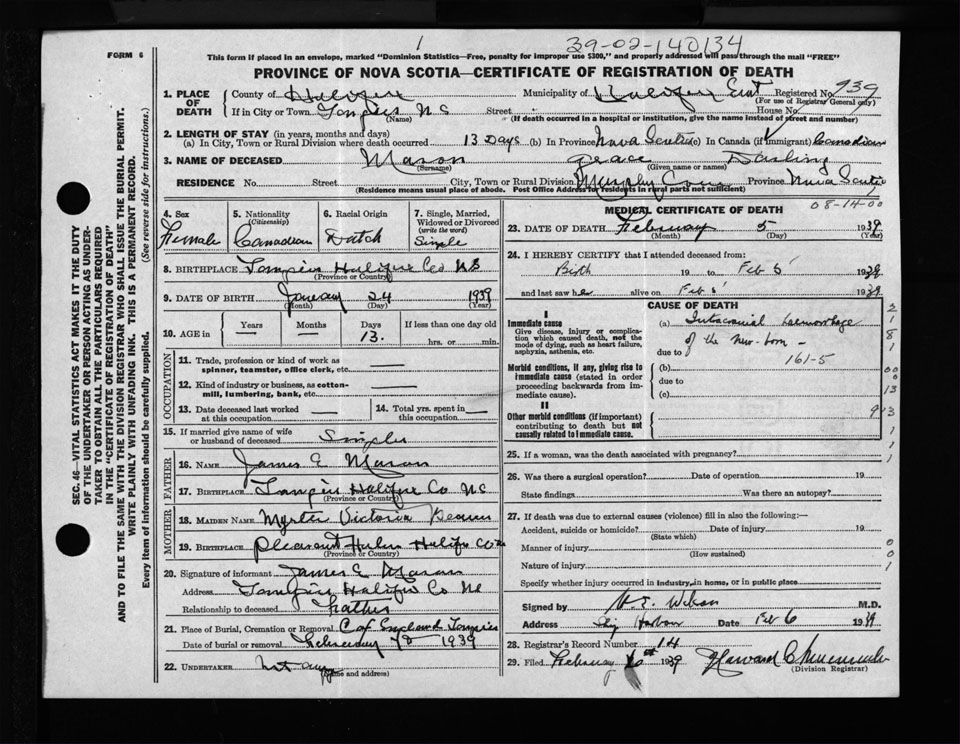 FORM 6
1
39-02-140134
This form if placed in an envelope, marked "Dominion Statistics—Free, penalty for improper use $300," and properly addressed will pass through the mail "FREE"
PROVINCE OF NOVA SCOTIA—CERTIFICATE OF REGISTRATION OF DEATH
SEC. 46—VITAL STATISTICS ACT MAKES IT THE DUTY
OF THE UNDERTAKER OR PERSON ACTING AS UNDER-
TAKER TO OBTAIN ALL THE PARTICULARS REQUIRED
IN THE "CERTIFICATE OF REGISTRATION OF DEATH"
AND TO FILE THE SAME WITH THE DIVISION REGISTRAR WHO SHALL ISSUE THE BURIAL PERMIT.
WRITE PLAINLY WITH UNFADING INK. THIS IS A PERMANENT RECORD.
Every item of information should be carefully supplied. (See reverse side for instructions.)
1. PLACE OF DEATH County of Halifax Municipality of Halifax East Registered No. 939
(For use of Registrar General only)
If in City or Town N S Street House No.
(Name) (If death occurred in a hospital or institution, give the name instead of street and number)
2. LENGTH OF STAY (in years, months and days)
(a) In City, Town or Rural Division where death occurred 13 Days (b) In Province Nova Scotia (c) In Canada (if immigrant) Canadian
3. NAME OF DECEASED Mason Grace Darling
(Surname) (Given name or names)
RESIDENCE No. Street City, Town or Rural Division Murphy Cove Province Nova Scotia
(Residence means usual place of abode. Post Office Address for Residents in rural parts not sufficient)
08-14-00
4. Sex Female
5. Nationality (Citizenship) Canadian
6. Racial Origin Dutch
7. Single, Married, Widowed or Divorced (write the word) Single
8. BIRTHPLACE Halifax Co NS
(Province or Country)
9. DATE OF BIRTH January 24 1939
(Month) (Day) (Year)
10. AGE in Years — Months — Days 13. If less than one day old hrs. or min.
OCCUPATION
11. Trade, profession or kind of work as spinner, teamster, office clerk, etc. —
12. Kind of industry or business, as cotton-mill, lumbering, bank, etc. —
13. Date deceased last worked at this occupation —
14. Total yrs. spent in this occupation —
15. If married give name of wife or husband of deceased Single
FATHER
16. NAME James E Mason
17. BIRTHPLACE Halifax Co NS
(Province or Country)
MOTHER
18. MAIDEN NAME Victoria
19. BIRTHPLACE Pleasant Halifax Co
(Province or Country)
20. Signature of informant James E Mason
Address Halifax Co NS
Relationship to deceased Father
21. Place of Burial, Cremation or Removal C of England
Date of burial or removal February 1939
22. UNDERTAKER Not any
(Name and address)
MEDICAL CERTIFICATE OF DEATH
23. DATE OF DEATH February 5 1939
(Month) (Day) (Year)
24. I HEREBY CERTIFY that I attended deceased from:
Birth 19 to Feb 5 1939
and last saw her alive on Feb 5 1939
CAUSE OF DEATH
I
Immediate cause
Give disease, injury or complication which caused death, not the mode of dying, such as heart failure, asphyxia, asthenia, etc.
(a) Intracranial haemorrhage
of the new-born -
due to 161-5
Morbid conditions, if any, giving rise to immediate cause (stated in order proceeding backwards from immediate cause).
(b)
due to
(c)
II
Other morbid conditions (if important) contributing to death but not causally related to immediate cause.
25. If a woman, was the death associated with pregnancy?
26. Was there a surgical operation? Date of operation 19
State findings Was there an autopsy?
27. If death was due to external causes (violence) fill in also the following:—
Accident, suicide or homicide? Date of injury 19
(State which)
Manner of injury
(How sustained)
Nature of injury
Specify whether injury occurred in industry, in home, or in public place
Signed by Wilson M.D.
Address Ship Harbour Date Feb 6 1939
28. Registrar's Record Number 14
29. Filed February 1939 Howard
(Division Registrar)